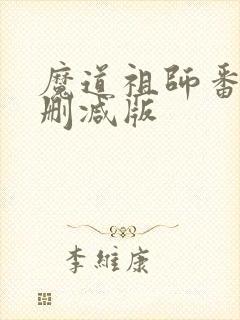 魔道祖师番
删减版
李維康